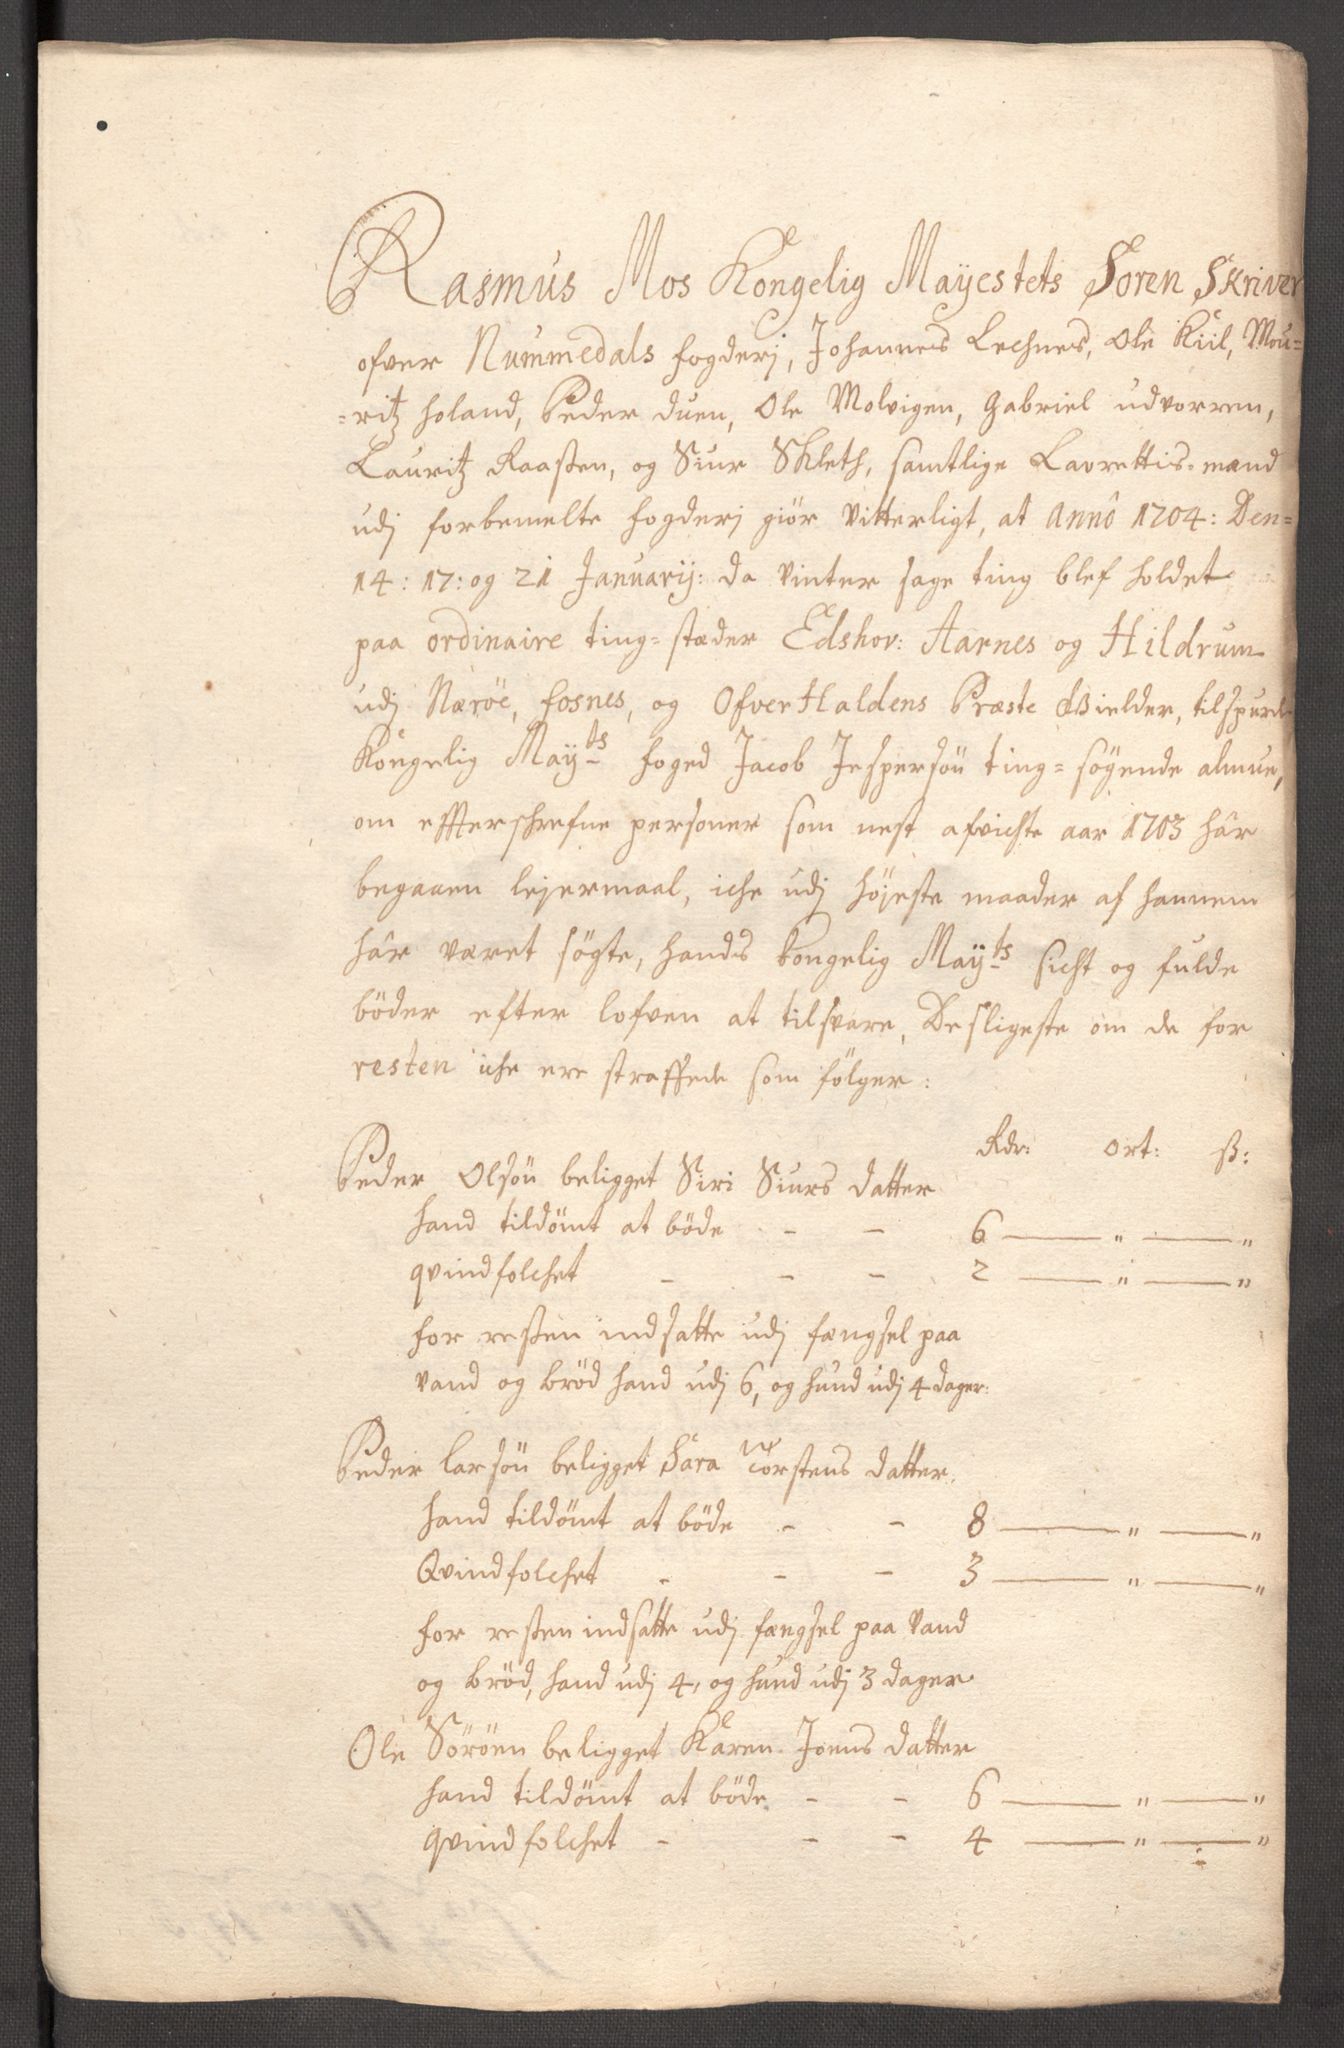 Rasmus Mos Kongelig Mayestets Soren Skriver
ofver Nummedals fogderj, Johannes Lechnes, Ole Kiil, Mou=
=ritz Holand, Peder Duen, Ole Molvigen, Gabriel udvorren,
Lauritz Raaßen, og Siur Skleth, samtlige Lavrettis-mænd
udj forbemelte fogderj giör vitterligt, at Anno 1704: Den=
14: 17: og 21 Januarij: da vinter sage ting blef holdet
paa ordinaire ting=stæder Edshov: Aarnes og Hildrum
udj Nærøe, fosnes, og OfverHaldens Præste Gielder, tilspurde
Kongelig Mayts foged Jacob Jespersön ting=sögende almue,
om effterschrefne personer som nest afvichte aar 1703 hâr
begaaen lejermaal, iche udj höjeste maader af hannem
hâr været sögte, hands kongelig Mayts sicht og fulde
böder efter lofven at tilsvare, Desligeste om de for
resten iche ere straffede som fölger:
Rdr: Ort: ß:
Peder Olsön beligget Siri Siurs datter
hand tildömt at böde - - 6 — " — "
qvindfolchet - - - 2 — " — "
for resten indsatte udj fængsel paa
vand og bröd hand udj 6, og hund udj 4 dager:
Peder Larsön beligget Sara Torstens datter
hand tildömt at böde - - 8 — " — "
Qvindfolchet - - - 3 — " — "
for resten indsatte udj fængsel paa vand
og bröd, hand udj 4, og hund udj 3 dager
Ole Söröen beligget Karen Joens datter
hand tildömt at böde - - 6 — " — "
qvindfolchet - - - 4 — " — "